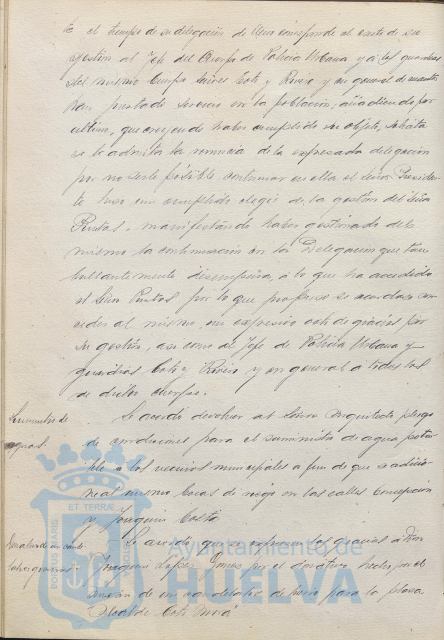 te el tiempo de su delegación de
gestión al Jefe del Cuerpo de Policía Urbana y a los guardias
del mismo Cuerpo Coto y Rivero y en general de cuantos
han prestado servicio en la población, añadiendo por
ultimo, que creyendo haber cumplido su objeto, solicita
se le admita la renuncia de la expresada delegación
por no serle posible continuar en ella el Señor Presiden-
te hizo un cumplido elogio de la gestión del Señor
manifestando haber gestionado del
mismo la continuación en la Delegación que tan
brillantemente desempeña, a lo que ha accedido
el Señor por lo que propuso se acordara con
ceder al mismo, un expresivo voto de gracias por
su gestión, así como al Jefe de Policía Urbana y
guardias Coto y Rivero y en general a todos los
de dicho cuerpo.
Suministro de
aguas.
Se acordó devolver al Señor Arquitecto pliego
de condiciones para el suministro de agua pota-
ble a los vecinos municipales a fin de que se adicio
ne al mismo bocas de riego en las calles Concepción
y Joaquín Costa
Se acordó que se expresen las gracias a Don
Joaquín López Gómez por el donativo hecho
de un candelabro de hierro para la plaza
"Alcalde Coto Mora"
PORTUS MARIS ET TERRAE CUSTODIA
Ayuntamiento de
HUELVA